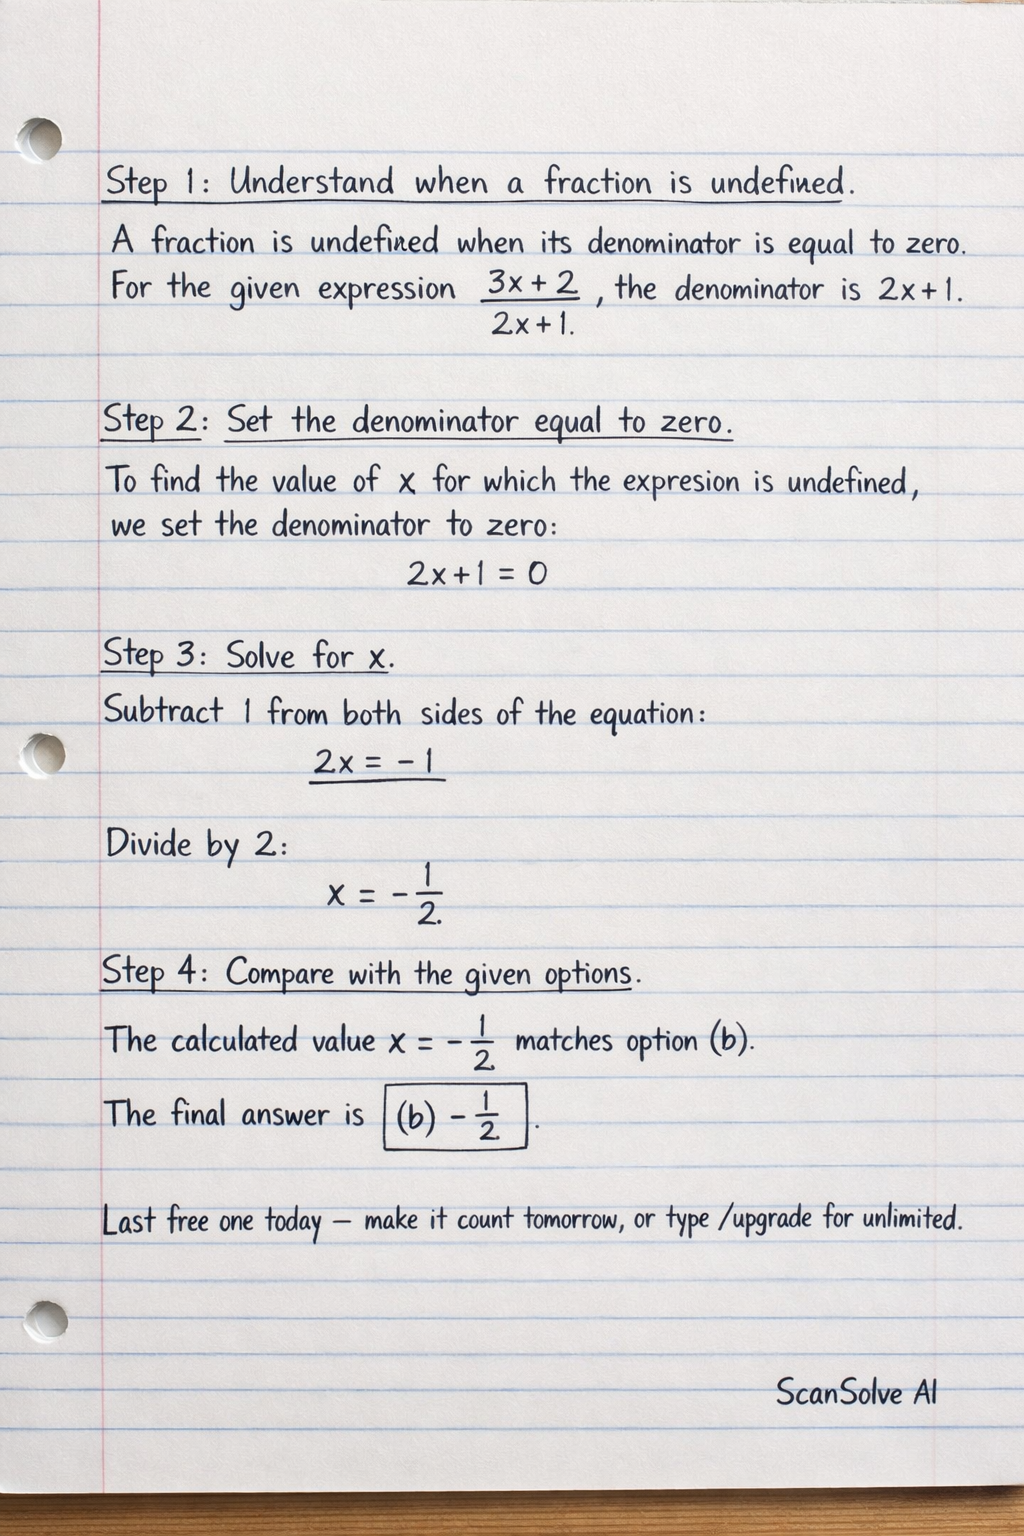 Step 1: Understand when a fraction is undefined.
A fraction is undefined when its denominator is equal to zero.
For the given expression 3x + 2 / 2x + 1. , the denominator is 2x + 1.
Step 2: Set the denominator equal to zero.
To find the value of x for which the expresion is undefined,
we set the denominator to zero:
2x + 1 = 0
Step 3: Solve for x.
Subtract 1 from both sides of the equation:
2x = - 1
Divide by 2:
x = - 1/2.
Step 4: Compare with the given options.
The calculated value x = - 1/2 matches option (b).
The final answer is (b) - 1/2 .
Last free one today — make it count tomorrow, or type /upgrade for unlimited.
ScanSolve AI